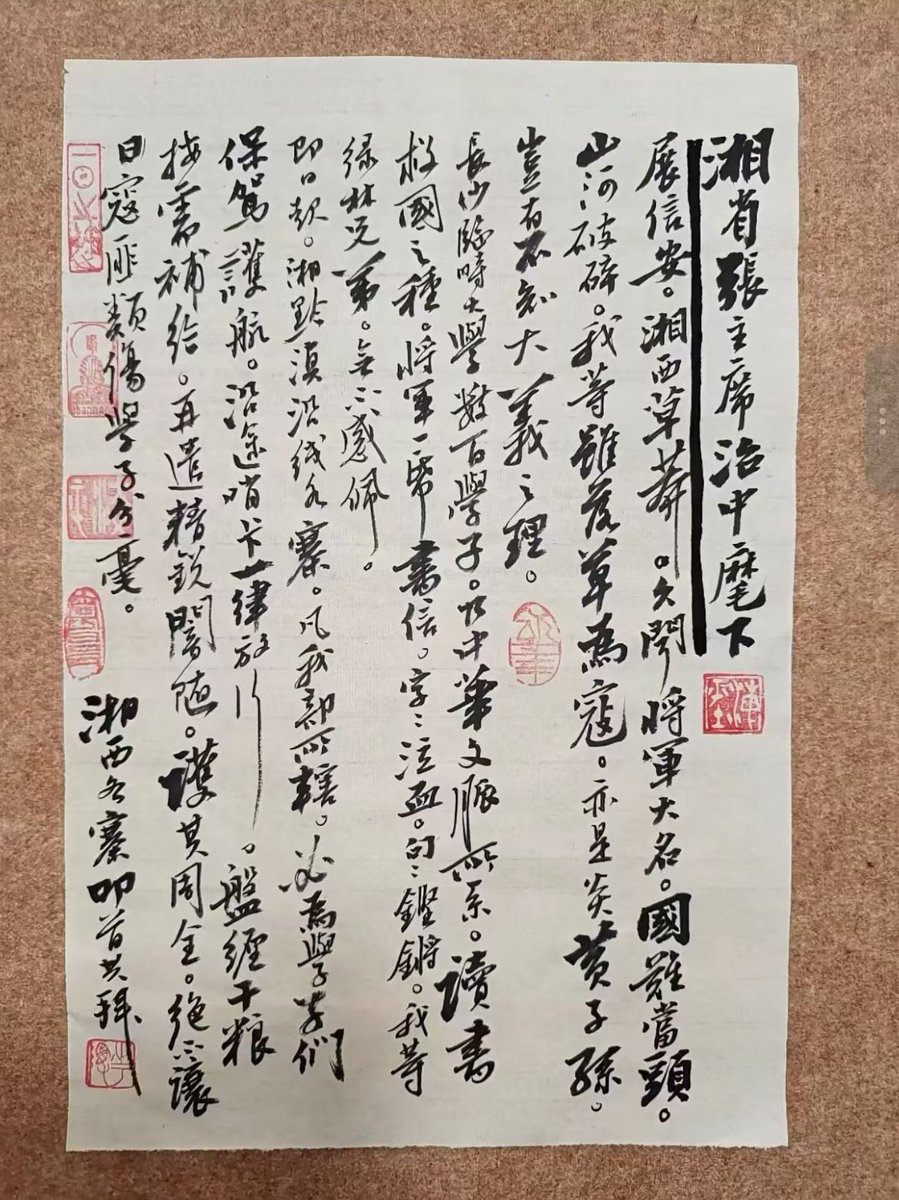 湘省張主席治中麾下
展信安。湘西草莽。久聞將軍大名。國難當頭。
山河破碎。我等雖落草為寇。亦是炎黃子孫。
豈有不知大義之理。
長沙臨時大學數百學子。皆中華文脈所系。讀書
救國之種。將軍一紙書信。字字泣血。句句鏗鏘。我等
绿林兄弟。無不感佩。
即日起。湘黔滇沿线各寨。凡我部所轄。必為學子們
保駕護航。沿途哨卡一律放行。盤缠干粮
按需補给。再遣精銳闇随。護其周全。絕不讓
日寇匪類傷學子分毫。
湘西各寨叩首共拜